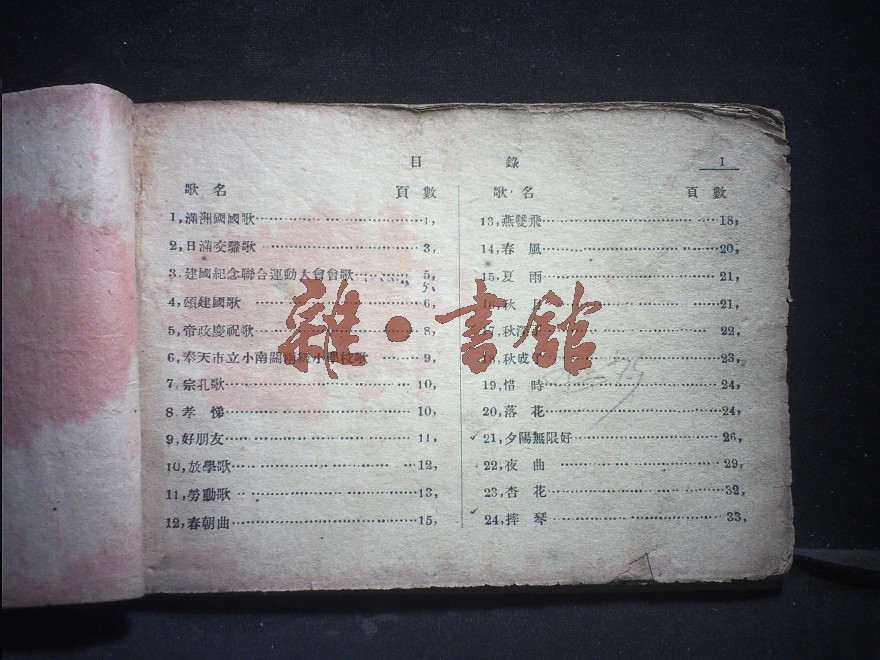 目 錄 1
歌名 頁數
1,滿洲國國歌 1,
2,日滿交驩歌 3,
3,建國紀念聯合運動大會會歌 5,
4,頌建國歌 6,
5,帝政慶祝歌 8,
6,奉天市立小南關 小學校歌 9,
7,宗孔歌 10,
8,孝悌 10,
9,好朋友 11,
10,放學歌 12,
11,勞動歌 13,
12,春朝曲 15,
歌名 頁數
13,燕雙飛 18,
14,春風 20,
15,夏雨 21,
16,秋月 21,
17,秋深了 22,
18,秋成了 23,
19,惜時 24,
20,落花 24,
21,夕陽無限好 26,
22,夜曲 29,
23,杏花 32,
24,摔琴 33,
雜·書館